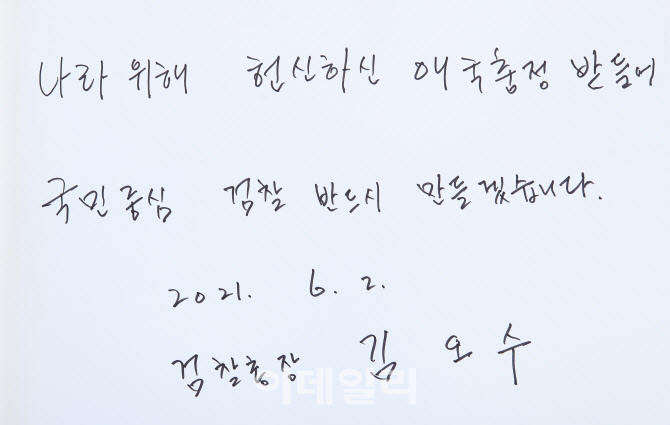 나라 위해 헌신하신 애국충정 받들어
국민중심 검찰 반드시 만들겠습니다.
2021. 6. 2.
검찰총장 김 오 수
이데일리